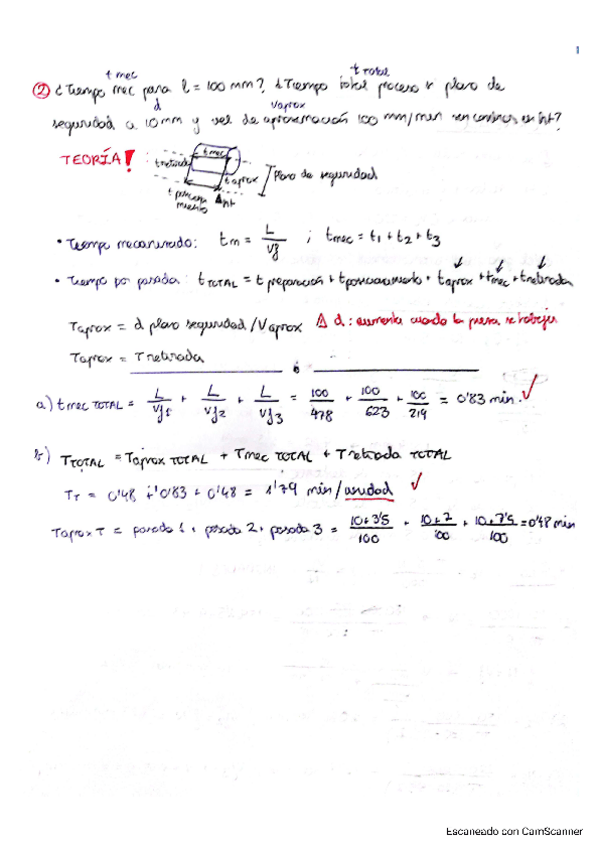 1
t mec
t total
② ¿Tiempo mec para l = 100 mm? ¿Tiempo total proceso y plano de
d
Vaprox
seguridad a 10 mm y vel de aproximación 100 mm/min en int?
TEORÍA!
t mec
t retirada
t aprox
Plano de seguridad
• Tiempo mecanizado: tm = L / Vf ; tmec = t1 + t2 + t3
• Tiempo por pasada: t TOTAL = t preparación + t posicionamiento + t aprox + t mec + t retirada
Taprox = d plano seguridad / Vaprox Δ d: aumenta cuando la pieza se trabaja
Taprox = T retirada
a) t mec TOTAL = L/Vf1 + L/Vf2 + L/Vf3 = 100/478 + 100/623 + 100/219 = 0'83 min.
b) TTOTAL = Taprox TOTAL + Tmec TOTAL + T retirada TOTAL
TT = 0'48 + 0'83 + 0'48 = 1'79 min/unidad
Taprox T = pasada 1 + pasada 2 + pasada 3 = 10+3'5/100 + 10+7/100 + 10+7'5/100 = 0'48 min
Escaneado con CamScanner